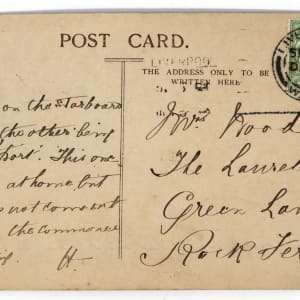 POST CARD.
LIVERPOOL
THE ADDRESS ONLY TO BE
WRITTEN HERE
LIVE
on the starboard
the other being
port. This one
at home but
not come out
the commence
H.
Wood
The Laurel
Green Lan
Rock Fer